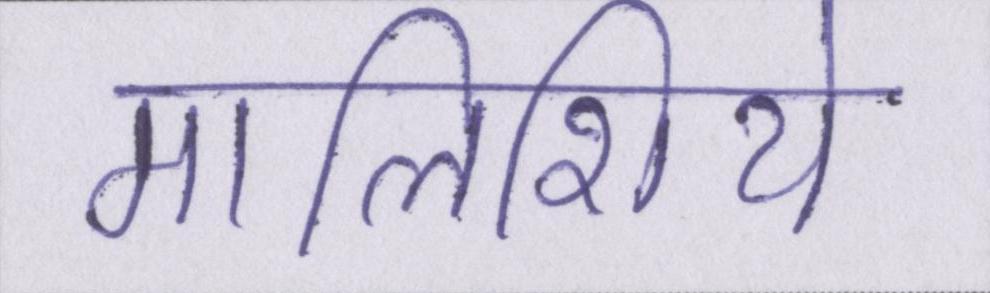 मालिशिये